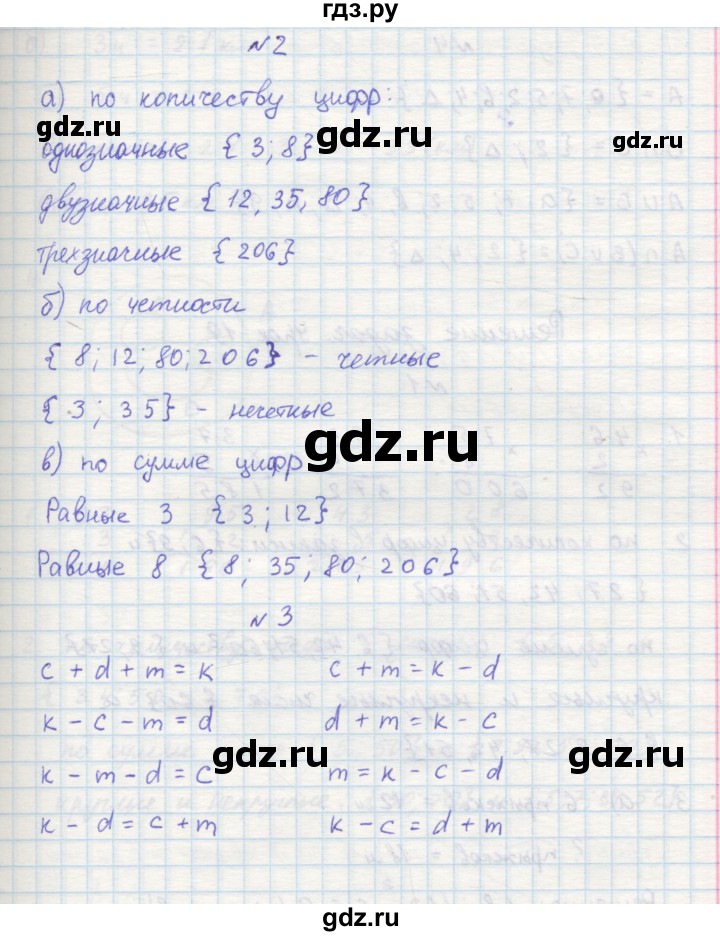 гдз.ру
№2
а) по количеству цифр:
gdz.ru gdz.ru
однозначные {3; 8}
двузначные {12, 35, 80}
gdz.ru
трехзначные {206}
gdz.ru
б) по четности
{8; 12; 80; 206} - четные
{3; 35} - нечетные
gdz.ru
в) по сумме цифр
Равные 3 {3; 12}
gdz.ru
Равные 8 {8; 35; 80; 206}
gdz.ru
№3
gdz.ru
c + d + m = k c + m = k - d
gdz.ru
k - c - m = d d + m = k - c
gdz.ru gdz.ru
k - m - d = c m = k - c - d
k - d = c + m k - c = d + m
gdz.ru gdz.ru
gdz.ru